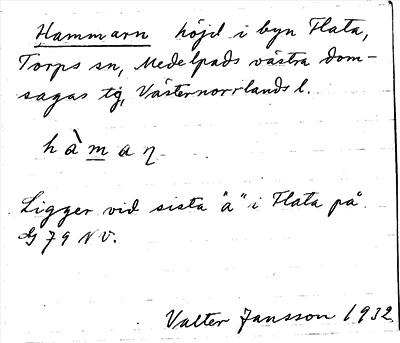 Hammarn höjd i byn Flata,
Torps sn, Medelpads västra dom-
sagas tg, Västernorrlands l.
hàmaɳ
Ligger vid sista "a" i Flata på
G 79 NV.
Valter Jansson 1932